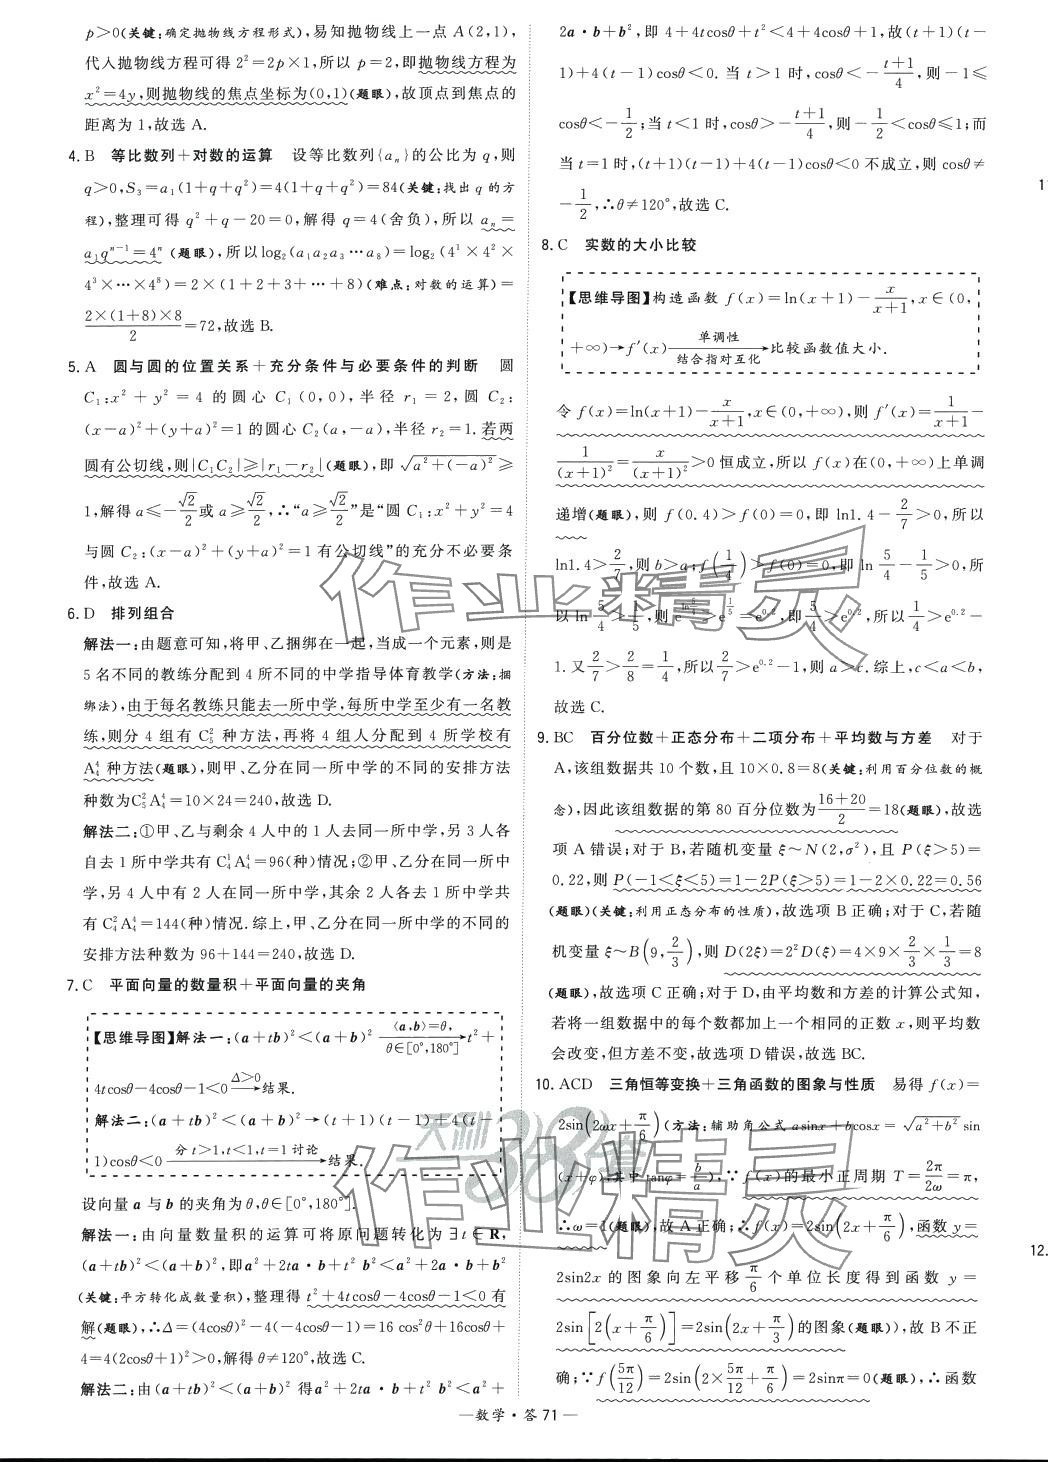 p>0(关键:确定抛物线方程形式),易知抛物线上一点 A(2,1),
代入抛物线方程可得 2²=2p×1,所以 p=2,即抛物线方程为
x²=4y,则抛物线的焦点坐标为(0,1)(题眼),故顶点到焦点的
距离为 1,故选 A.
4. B 等比数列+对数的运算 设等比数列{aₙ}的公比为 q,则
q>0,S₃=a₁(1+q+q²)=4(1+q+q²)=84(关键:找出 q 的方
程),整理可得 q²+q-20=0,解得 q=4(舍负),所以 aₙ=
a₁qⁿ⁻¹=4ⁿ(题眼),所以log₂(a₁a₂a₃…a₈)=log₂(4¹×4²×
4³×…×4⁸)=2×(1+2+3+…+8)(难点:对数的运算)=
2×(1+8)×8/2=72,故选 B.
5. A 圆与圆的位置关系+充分条件与必要条件的判断 圆
C₁:x²+y²=4 的圆心 C₁(0,0),半径 r₁=2,圆 C₂:
(x-a)²+(y+a)²=1 的圆心 C₂(a,-a),半径 r₂=1.若两
圆有公切线,则|C₁C₂|≥|r₁-r₂|(题眼),即 √(a²+(-a)²)≥
1,解得 a≤-√2/2或 a≥√2/2,∴“a≥√2/2”是“圆 C₁:x²+y²=4
与圆 C₂:(x-a)²+(y+a)²=1 有公切线”的充分不必要条
件,故选 A.
6. D 排列组合
解法一:由题意可知,将甲、乙捆绑在一起,当成一个元素,则是
5 名不同的教练分配到 4 所不同的中学指导体育教学(方法:捆
绑法),由于每名教练只能去一所中学,每所中学至少有一名教
练,则分 4 组有 C₅² 种方法,再将 4 组人分配到 4 所学校有
A₄⁴ 种方法(题眼),则甲、乙分在同一所中学的不同的安排方法
种数为C₅²A₄⁴=10×24=240,故选 D.
解法二:①甲、乙与剩余 4 人中的 1 人去同一所中学,另 3 人各
自去 1 所中学共有 C₄¹A₄⁴=96(种)情况;②甲、乙分在同一所中
学,另 4 人中有 2 人在同一所中学,其余 2 人各去 1 所中学共
有 C₄²A₄⁴=144(种)情况.综上,甲、乙分在同一所中学的不同的
安排方法种数为 96+144=240,故选 D.
7. C 平面向量的数量积+平面向量的夹角
【思维导图】解法一:(a+tb)²<(a+b)² ⟨a,b⟩=θ,θ∈[0°,180°]→t²+
4tcosθ-4cosθ-1<0 Δ>0→结果.
解法二:(a+tb)²<(a+b)²→(t+1)(t-1)+4(t-
1)cosθ<0 分 t>1,t<1,t=1 讨论→结果.
设向量 a 与 b 的夹角为 θ,θ∈[0°,180°].
解法一:由向量数量积的运算可将原问题转化为 ∃t∈R,
(a+tb)²<(a+b)²,即a²+2ta·b+t²b²<a²+2a·b+b²
(关键:平方转化成数量积),整理得 t²+4tcosθ-4cosθ-1<0 有
解(题眼),∴Δ=(4cosθ)²-4(-4cosθ-1)=16cos²θ+16cosθ+
4=4(2cosθ+1)²>0,解得 θ≠120°,故选 C.
解法二:由(a+tb)²<(a+b)² 得a²+2ta·b+t²b²<a²+
2a·b+b²,即 4+4tcosθ+t²<4+4cosθ+1,故(t+1)(t-
1)+4(t-1)cosθ<0.当 t>1 时,cosθ<-(t+1)/4,则-1≤
cosθ<-1/2;当 t<1 时,cosθ>-(t+1)/4,则-1/2<cosθ≤1;而
当 t=1 时,(t+1)(t-1)+4(t-1)cosθ<0 不成立,则 cosθ≠
-1/2,∴θ≠120°,故选 C.
8. C 实数的大小比较
【思维导图】构造函数 f(x)=ln(x+1)-x/(x+1),x∈(0,
+∞)→f′(x) 单调性 结合指对互化→比较函数值大小.
令 f(x)=ln(x+1)-x/(x+1),x∈(0,+∞),则 f′(x)=1/(x+1)-
1/(x+1)²=x/(x+1)²>0 恒成立,所以 f(x)在(0,+∞)上单调
递增(题眼),则 f(0.4)>f(0)=0,即 ln1.4-2/7>0,所以
ln1.4>2/7,则 b>a;f(1/4)>f(0)=0,即 ln 5/4-1/5>0,所
以 ln 5/4>1/5,则 e^(ln 5/4)>e^(1/5)=e^0.2,即 5/4>e^0.2,所以 1/4>e^0.2-
1.又 2/7>2/8=1/4,所以 2/7>e^0.2-1,则 a>c.综上,c<a<b,
故选 C.
9. BC 百分位数+正态分布+二项分布+平均数与方差 对于
A,该组数据共 10 个数,且 10×0.8=8(关键:利用百分位数的概
念),因此该组数据的第 80 百分位数为(16+20)/2=18(题眼),故选
项 A 错误;对于 B,若随机变量 ξ~N(2,σ²),且 P(ξ>5)=
0.22,则 P(-1<ξ<5)=1-2P(ξ>5)=1-2×0.22=0.56
(题眼)(关键:利用正态分布的性质),故选项 B 正确;对于 C,若随
机变量 ξ~B(9,2/3),则 D(2ξ)=2²D(ξ)=4×9×2/3×1/3=8
(题眼),故选项 C 正确;对于 D,由平均数和方差的计算公式知,
若将一组数据中的每个数都加上一个相同的正数 x,则平均数
会改变,但方差不变,故选项 D 错误,故选 BC.
10. ACD 三角恒等变换+三角函数的图象与性质 易得 f(x)=
2sin(2ωx+π/6)(方法:辅助角公式 asinx+bcosx=√(a²+b²)sin
(x+φ),其中 tanφ=b/a),∵f(x)的最小正周期 T=2π/2ω=π,
∴ω=1(题眼),故 A 正确;∴f(x)=2sin(2x+π/6),函数 y=
2sin2x 的图象向左平移 π/6 个单位长度得到函数 y=
2sin[2(x+π/6)]=2sin(2x+π/3)的图象(题眼)),故 B 不正
确;∵f(5π/12)=2sin(2×5π/12+π/6)=2sinπ=0(题眼),∴函数
1
12.
作业精灵
天利38套
作业精灵
—数学·答 71—